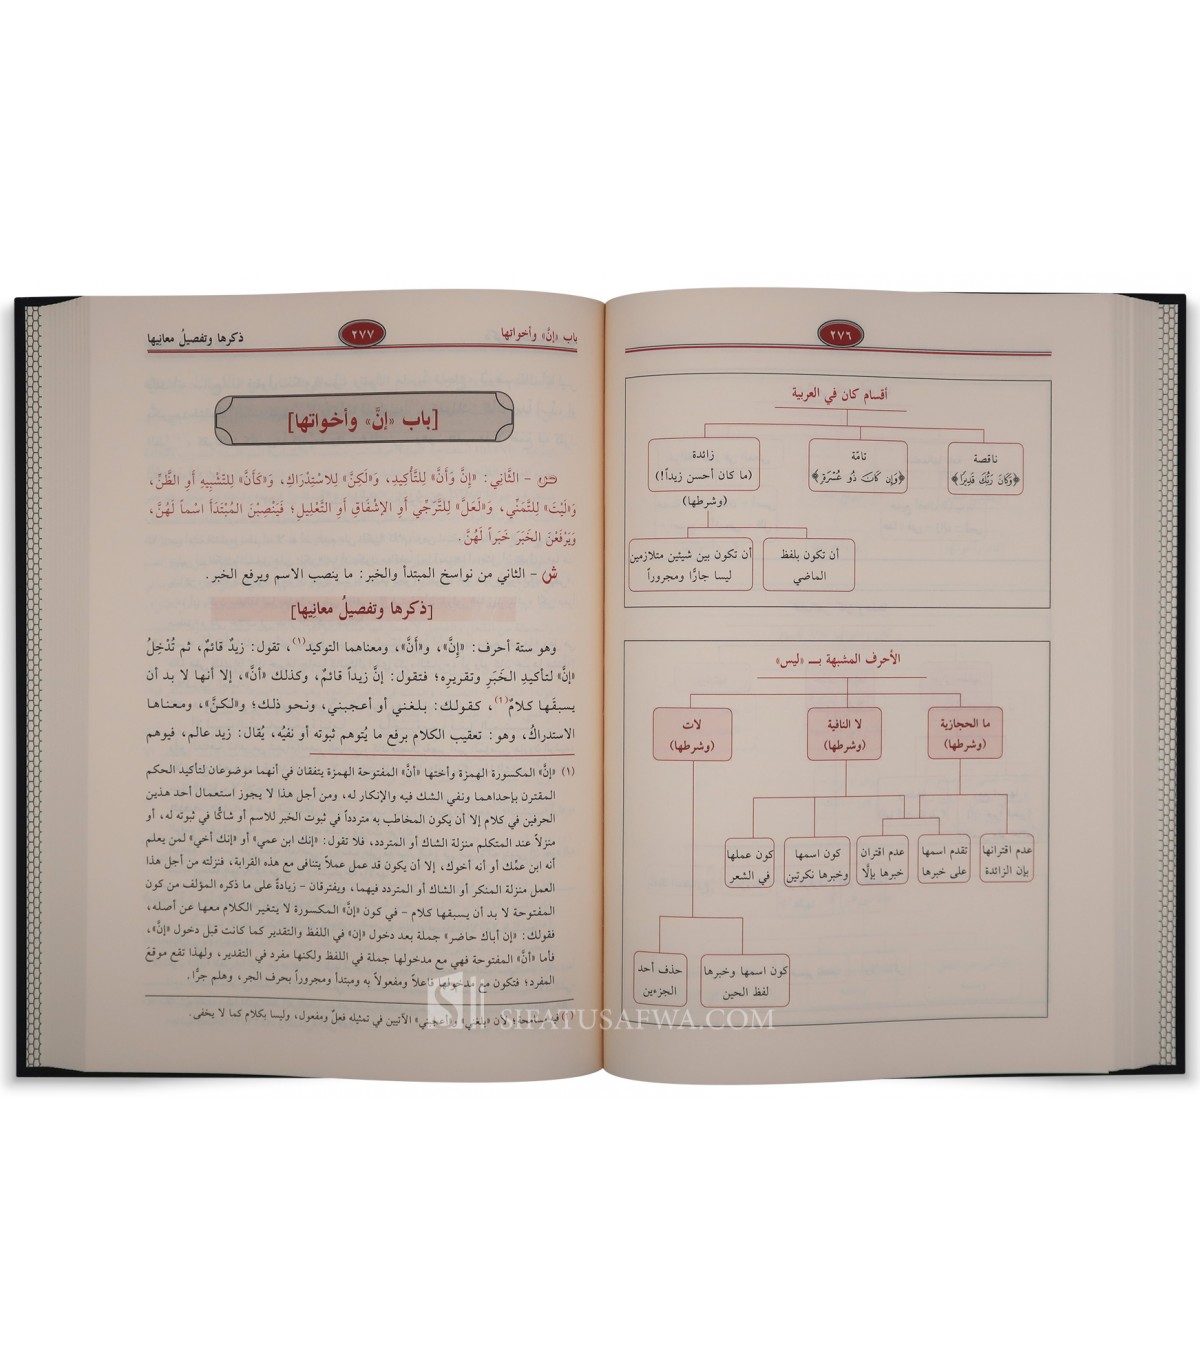 ٢٧٦
أقسام كان في العربية
ناقصة
﴿وَكَانَ رَبُّكَ قَدِيرًا﴾
تامّة
﴿وَإِن كَانَ ذُو عُسْرَةٍ﴾
زائدة
(ما كان أحسن زيداً!)
(وشرطها)
أن تكون بلفظ
الماضي
أن تكون بين شيئين متلازمين
ليسا جارًّا ومجروراً
الأحرف المشبهة بـ «ليس»
ما الحجازية
(وشرطها)
لا النافية
(وشرطها)
لات
(وشرطها)
عدم اقترانها
بإن الزائدة
تقدم اسمها
على خبرها
عدم اقتران
خبرها بإلّا
كون اسمها
وخبرها نكرتين
كون عملها
في الشعر
كون اسمها وخبرها
لفظ الحين
حذف أحد
الجزءين
باب «إنَّ» وأخواتها
٢٧٧
ذكرها وتفصيلُ معانِيها
[باب «إنَّ» وأخواتها]
ص - الثَّانِي: «إِنَّ وَأَنَّ» لِلتَّأْكِيدِ، وَ«لَكِنَّ» لِلاسْتِدْرَاكِ، وَ«كَأَنَّ» لِلتَّشْبِيهِ أَوِ الظَّنِّ،
وَ«لَيْتَ» لِلتَّمَنِّي، وَ«لَعَلَّ» لِلتَّرَجِّي أَوِ الإِشْفَاقِ أَوِ التَّعْلِيلِ؛ فَيَنْصِبْنَ المُبْتَدَأَ اسْماً لَهُنَّ،
وَيَرْفَعْنَ الخَبَرَ خَبَراً لَهُنَّ.
ش - الثاني من نواسخ المبتدأ والخبر: ما ينصب الاسم ويرفع الخبر.
[ذكرها وتفصيلُ معانِيها]
وهو ستة أحرف: «إِنَّ»، و«أَنَّ»، ومعناهما التوكيد(١)، تقول: زيدٌ قائمٌ، ثم تُدْخِلُ
«إنَّ» لتأكيدِ الخَبَرِ وتقريرِه؛ فتقول: إنَّ زيداً قائم، وكذلك «أنَّ»، إلا أنها لا بد أن
يسبقَها كلامٌ(٢)، كقولك: بلغني أو أعجبني، ونحو ذلك؛ و«لكنَّ»، ومعناها
الاستدراكُ، وهو: تعقيب الكلام برفع ما يُتوهم ثبوته أو نفيُه، يُقال: زيد عالم، فيوهم
(١) «إنَّ» المكسورة الهمزة وأختها «أنَّ» المفتوحة الهمزة يتفقان في أنهما موضوعان لتأكيد الحكم
المقترن بإحداهما ونفي الشك فيه والإنكار له، ومن أجل هذا لا يجوز استعمال أحد هذين
الحرفين في كلام إلا أن يكون المخاطب به متردداً في ثبوت الخبر للاسم أو شاكًّا في ثبوته له، أو
منزلاً عند المتكلم منزلة الشاك أو المتردد، فلا تقول: «إنك ابن عمي» أو «إنك أخي» لمن يعلم
أنه ابن عمِّك أو أنه أخوك، إلا أن يكون قد عمل عملاً يتنافى مع هذه القرابة، فنزلته من أجل هذا
العمل منزلة المنكر أو الشاك أو المتردد فيهما، ويفترقان - زيادةً على ما ذكره المؤلف من كون
المفتوحة لا بد أن يسبقها كلام - في كون «إنَّ» المكسورة لا يتغير الكلام معها عن أصله،
فقولك: «إن أباك حاضر» جملة بعد دخول «إن» في اللفظ والتقدير كما كانت قبل دخول «إنَّ»،
فأما «أنَّ» المفتوحة فهي مع مدخولها جملة في اللفظ ولكنها مفرد في التقدير، ولهذا تقع موقعَ
المفرد؛ فتكون مع مدخولها فاعلاً ومفعولاً به ومبتدأ ومجروراً بحرف الجر، وهلم جرًّا.
(٢) فيه مسامحة؛ لأن «بلغني» و«أعجبني» الآتيين في تمثيله فعلٌ ومفعول، وليسا بكلام كما لا يخفى.
SIFATUSAFWA.COM